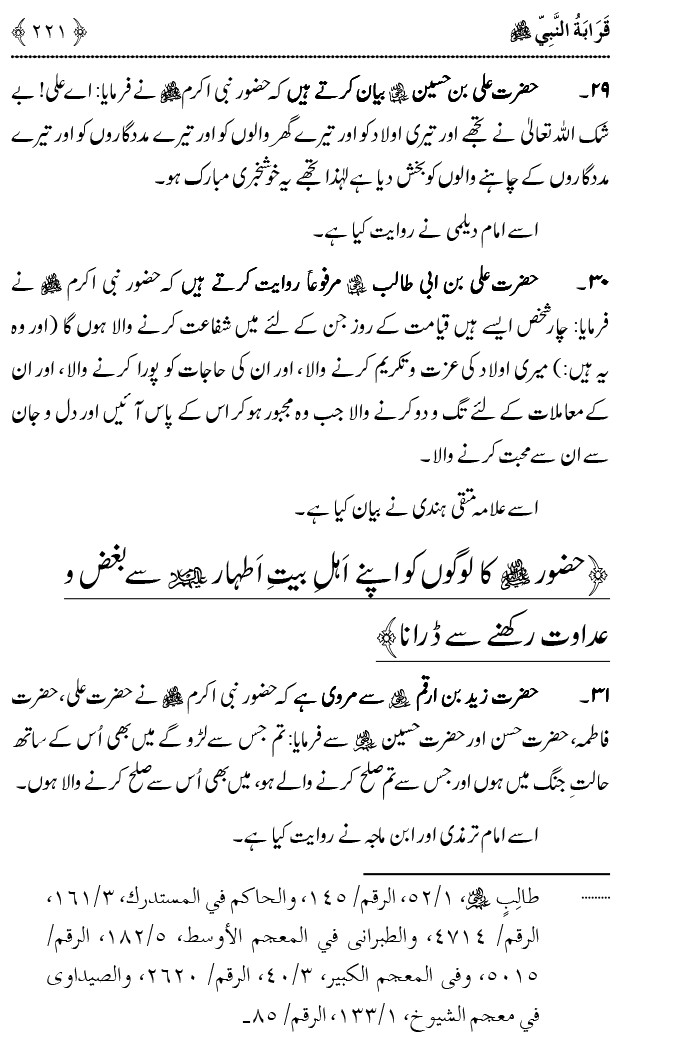 قَرَابَةُ النَّبِيِّ ﷺ ﴿٢٢١﴾
۲۹۔ حضرت علی بن حسین ؓ بیان کرتے ہیں کہ حضور نبی اکرم ﷺ نے فرمایا: اے علی! بے
شک اللہ تعالیٰ نے تجھے اور تیری اولاد کو اور تیرے گھر والوں کو اور تیرے مددگاروں کو اور تیرے
مددگاروں کے چاہنے والوں کو بخش دیا ہے لہٰذا تجھے یہ خوشخبری مبارک ہو۔
اسے امام دیلمی نے روایت کیا ہے۔
۳۰۔ حضرت علی بن ابی طالب ؓ مرفوعاً روایت کرتے ہیں کہ حضور نبی اکرم ﷺ نے
فرمایا: چار شخص ایسے ہیں قیامت کے روز جن کے لئے میں شفاعت کرنے والا ہوں گا (اور وہ
یہ ہیں:) میری اولاد کی عزت و تکریم کرنے والا، اور ان کی حاجات کو پورا کرنے والا، اور ان
کے معاملات کے لئے تگ و دو کرنے والا جب وہ مجبور ہو کر اس کے پاس آئیں اور دل و جان
سے ان سے محبت کرنے والا۔
اسے علامہ متقی ہندی نے بیان کیا ہے۔
﴿حضور ﷺ کا لوگوں کو اپنے اَہلِ بیتِ اَطہار ؑ سے بغض و
عداوت رکھنے سے ڈرانا﴾
۳۱۔ حضرت زید بن ارقم ؓ سے مروی ہے کہ حضور نبی اکرم ﷺ نے حضرت علی، حضرت
فاطمہ، حضرت حسن اور حضرت حسین ؓ سے فرمایا: تم جس سے لڑو گے میں بھی اُس کے ساتھ
حالتِ جنگ میں ہوں اور جس سے تم صلح کرنے والے ہو، میں بھی اُس سے صلح کرنے والا ہوں۔
اسے امام ترمذی اور ابن ماجہ نے روایت کیا ہے۔
......... طالِبٍ ؓ، ٥٢/١، الرقم/ ١٤٥، والحاكم في المستدرك، ١٦١/٣،
الرقم/ ٤٧١٤، والطبرانى في المعجم الأوسط، ١٨٢/٥، الرقم/
٥٠١٥، وفى المعجم الكبير، ٤٠/٣، الرقم/ ٢٦٢٠، والصيداوى
في معجم الشيوخ، ١٣٣/١، الرقم/ ٨٥۔